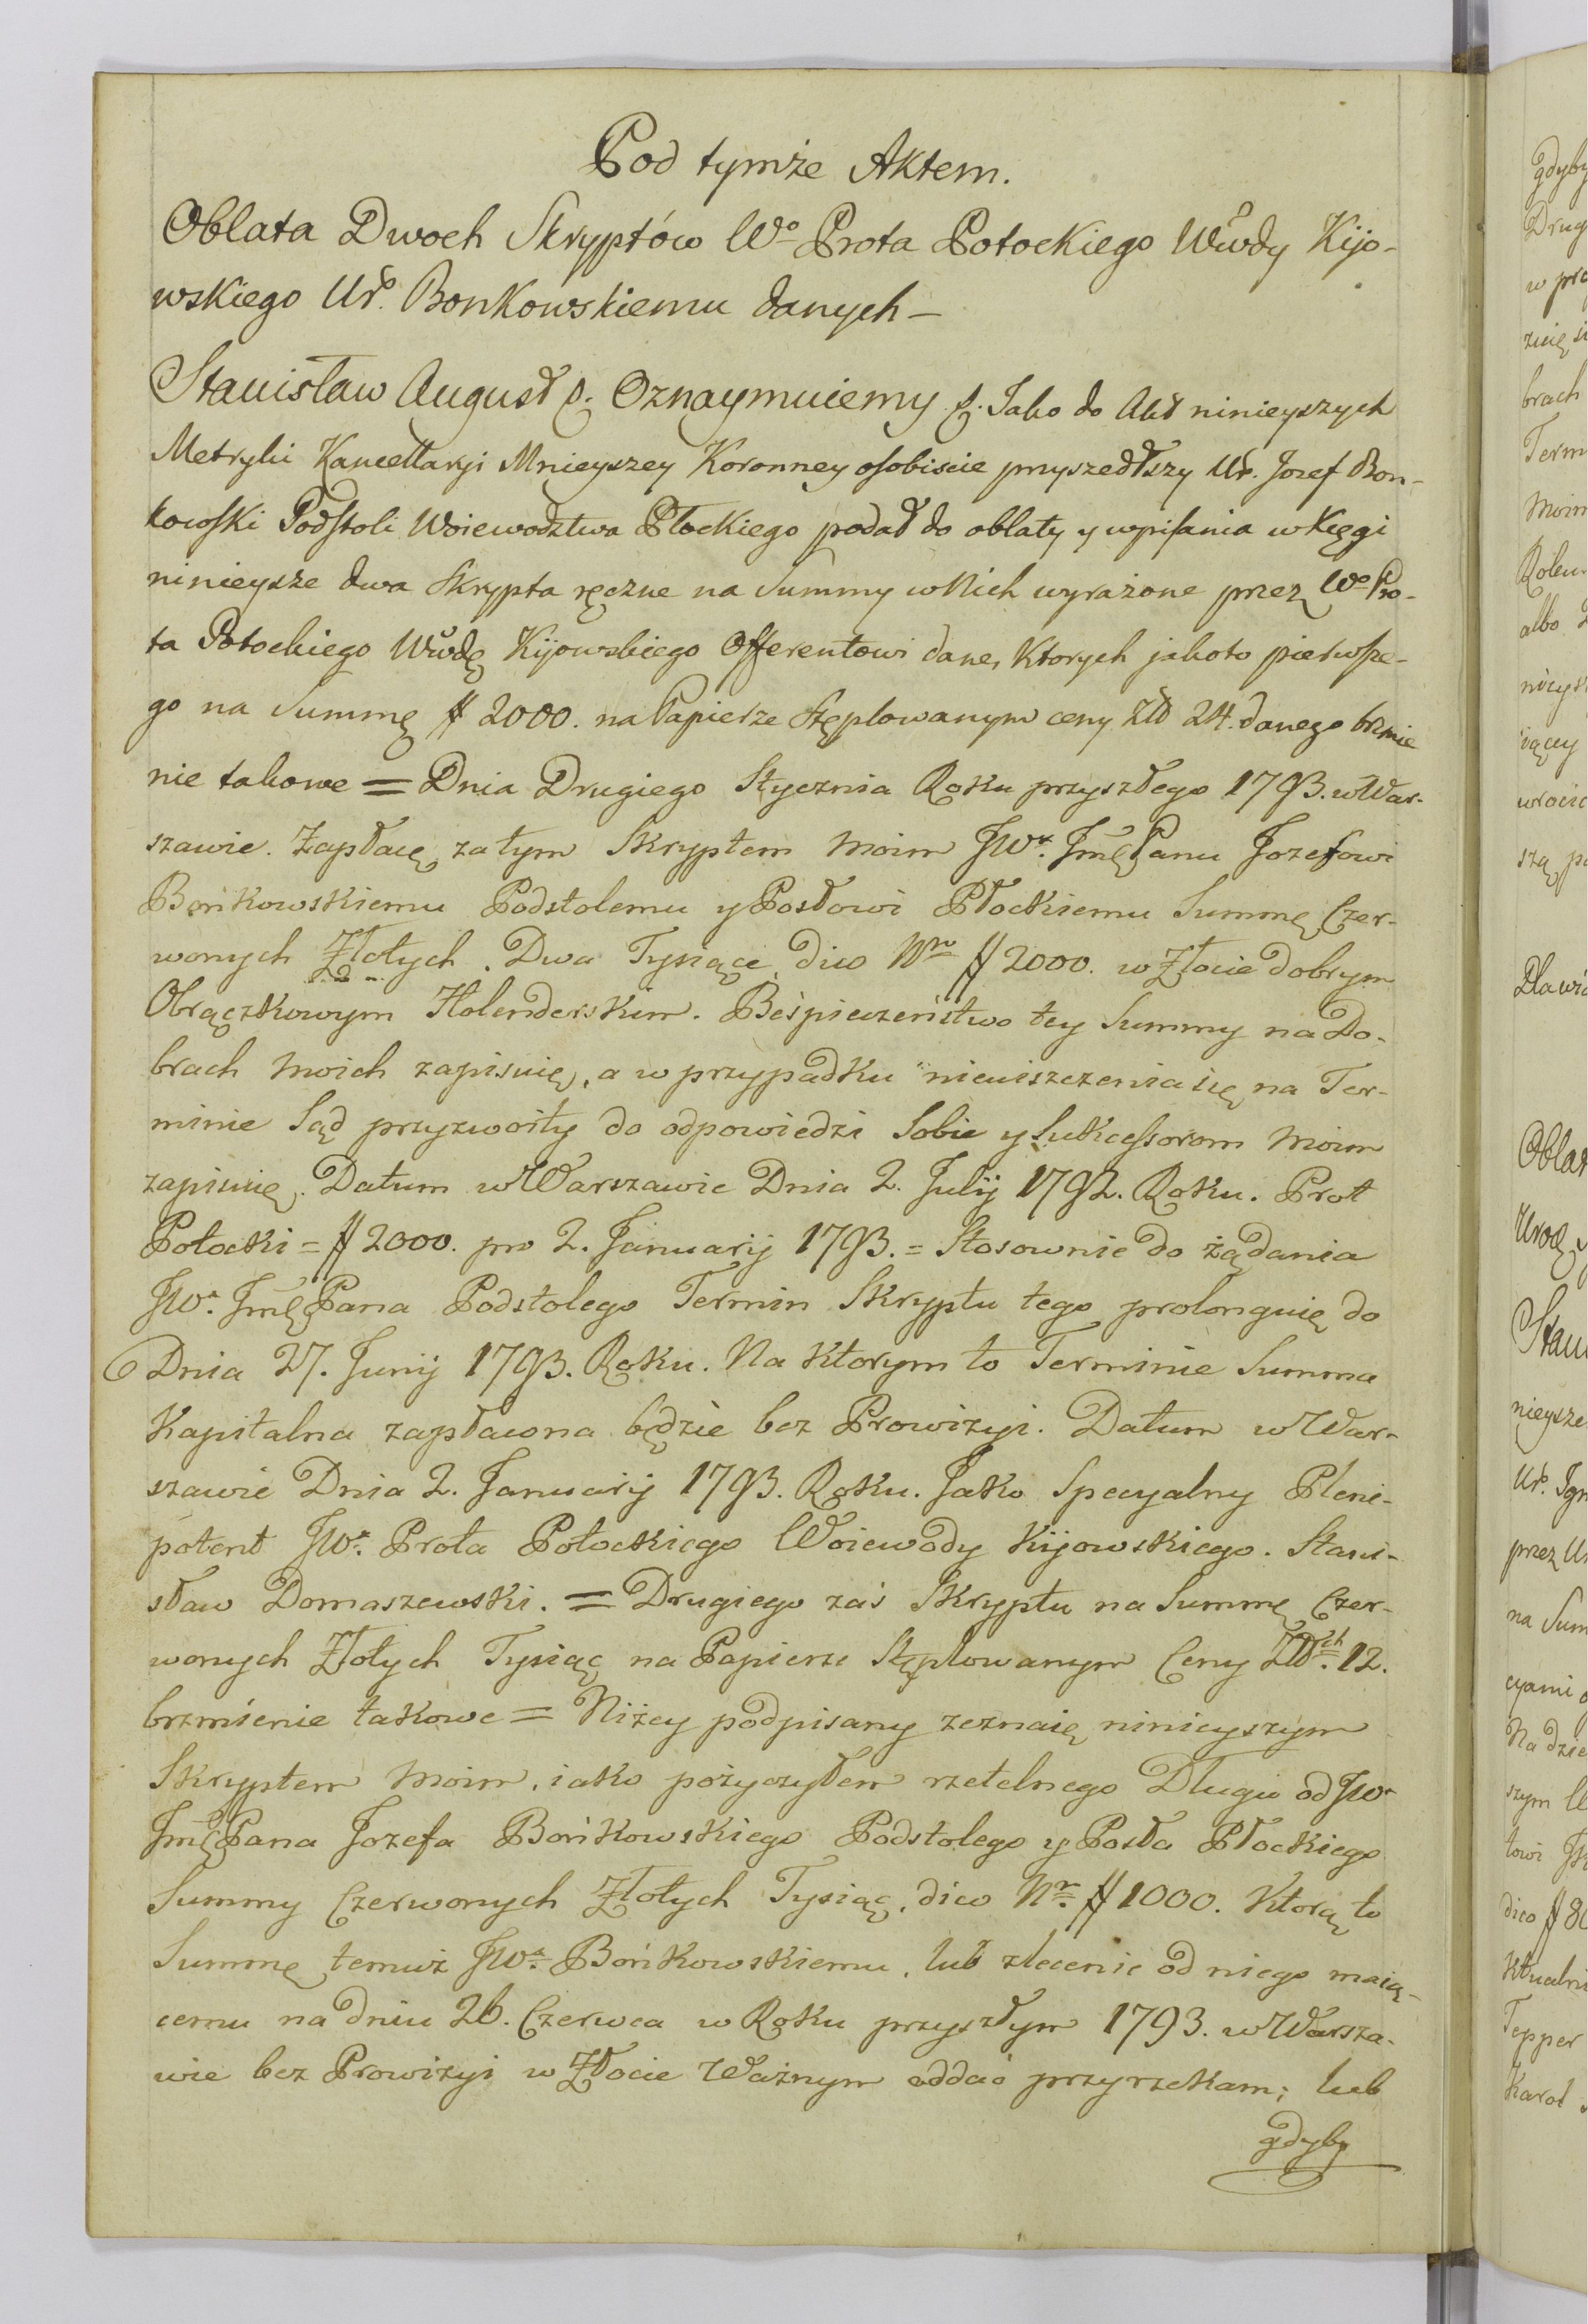 Pod tymże Aktem.
Oblata Dwoch Skryptów Wo Prota Potockiego Wwdy Kijo-
wskiego Ur. Bonkowskiemu danych —
Stanisław August &. Oznaymuiemy &. Jako do Akt ninieyszych
Metryki Kancellaryi Mnieyszey Koronney osobiscie przyszedłszy Ur. Jozef Bon-
kowski Podstoli Woiewodztwa Płockiego podał do oblaty y wpisania w Xięgi
ninieysze dwa Skrypta ręczne na Summy w Nich wyrażone przez Wo Pro-
ta Potockiego Wwdę Kijowskiego Offerentowi dane, Ktorych jakoto pierwsze-
go na Summę # 2000. na Papierze Stęplowanym ceny Zło 24. danego brzmie
nie takowe = Dnia Drugiego Stycznia Roku przyszłego 1793. w War-
szawie. Zapłacę za tym Skryptem Moim JWu. Jmę Panu Jozefowi
Bońkowskiemu Podstolemu y Posłowi Płockiemu Summę Czer-
wonych Złotych. Dwa Tysiące dico Nro # 2000. w Złocie dobrym
Obrączkowym Holenderskim. Beśpieczeństwo tey Summy na Do-
brach Moich zapisuię, a w przypadku nieuiszczenia się na Ter-
minie Sąd przyzwoity do odpowiedzi Sobie y Sukcessorom Moim
zapisuię. Datum w Warszawie Dnia 2. Julij 1792. Roku. Prot
Potocki = # 2000. pro 2. Januarij 1793. = Stosownie do żądania
JWa. Jmę Pana Podstolego Termin Skryptu tego prolonguię do
Dnia 27. Junij 1793. Roku. Na Ktorym to Terminie Summa
Kapitalna zapłacona będzie bez Prowizyi. Datum w War-
szawie Dnia 2. Januarij 1793. Roku. Jako Specyalny Pleni-
potent JWo. Prota Potockiego Woiewody Kijowskiego. Stani-
sław Domaszewski. = Drugiego zaś Skryptu na Summę Czer-
wonych Złotych Tysiąc na Papierze Stęplowanym Ceny Złłch. 12.
brzmienie takowe = Niżey podpisany zeznaię ninieyszym
Skryptem Moim, iako pożyczyłem rzetelnego Długu od JWo
Jmę Pana Jozefa Bońkowskiego Podstolego y Posła Płockiego
Summy Czerwonych Złotych Tysiąc, dico Nro. # 1000. Ktorą to
Summę temuż JWu. Bońkowskiemu, lub zlecenie od niego maią-
cemu na dniu 26. Czerwca w Roku przyszłym 1793. w Warsza-
wie bez Prowizyi w Złocie Ważnym oddać przyrzekam; lub
gdyby
gdyby
Drug
w prz
brach
Term
Moim
albo
iącey
wrocic
Oblat
Stani
nieysze
Ur. Ign
przez Ur
na Sum
cyami
Na dzie
szym
towi
dico #
Tepper
Karol